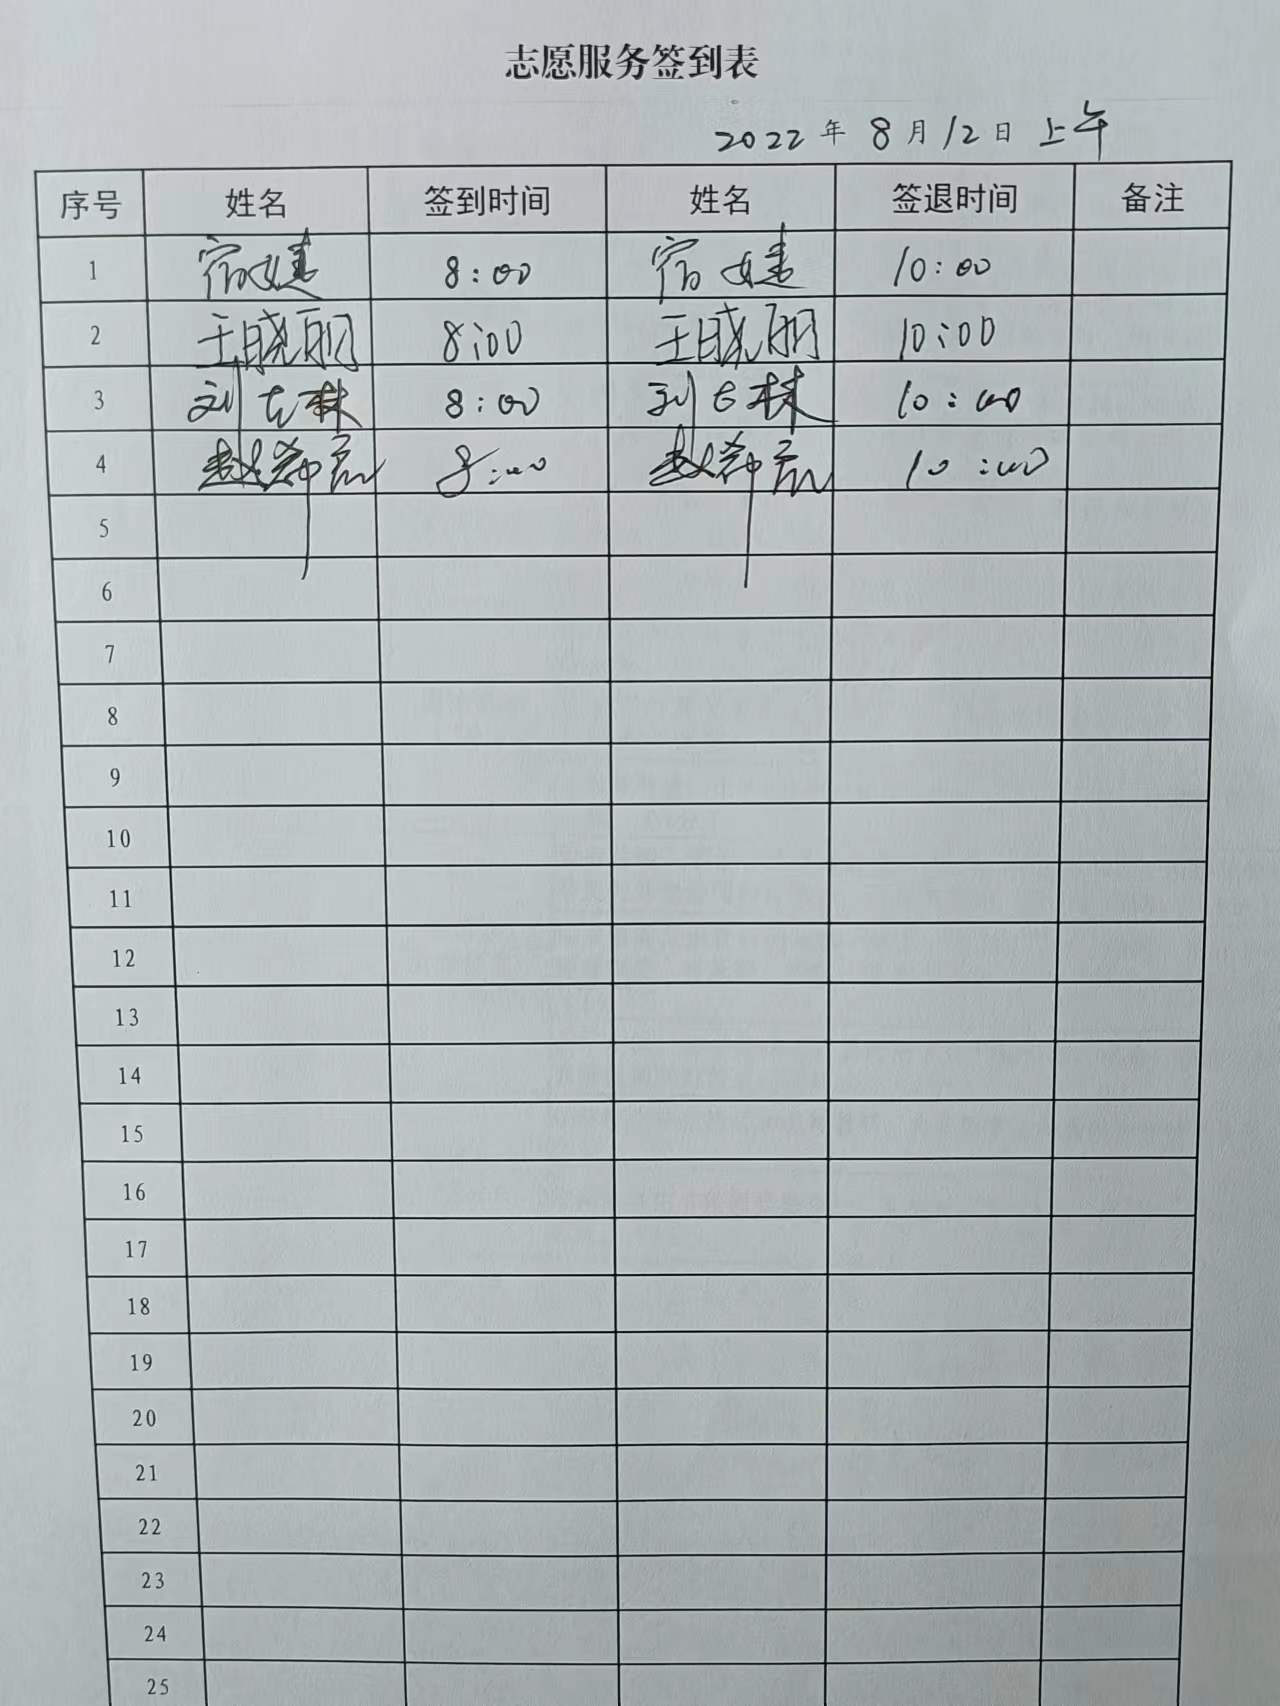 志愿服务签到表
2022年8月12日 上午
序号 姓名 签到时间 姓名 签退时间 备注
1 宿婕 8:00 宿婕 10:00
2 王晓丽 8:00 王晓丽 10:00
3 刘 林 8:00 刘 林 10:00
4 赵 8:00 赵 10:00
5
6
7
8
9
10
11
12
13
14
15
16
17
18
19
20
21
22
23
24
25